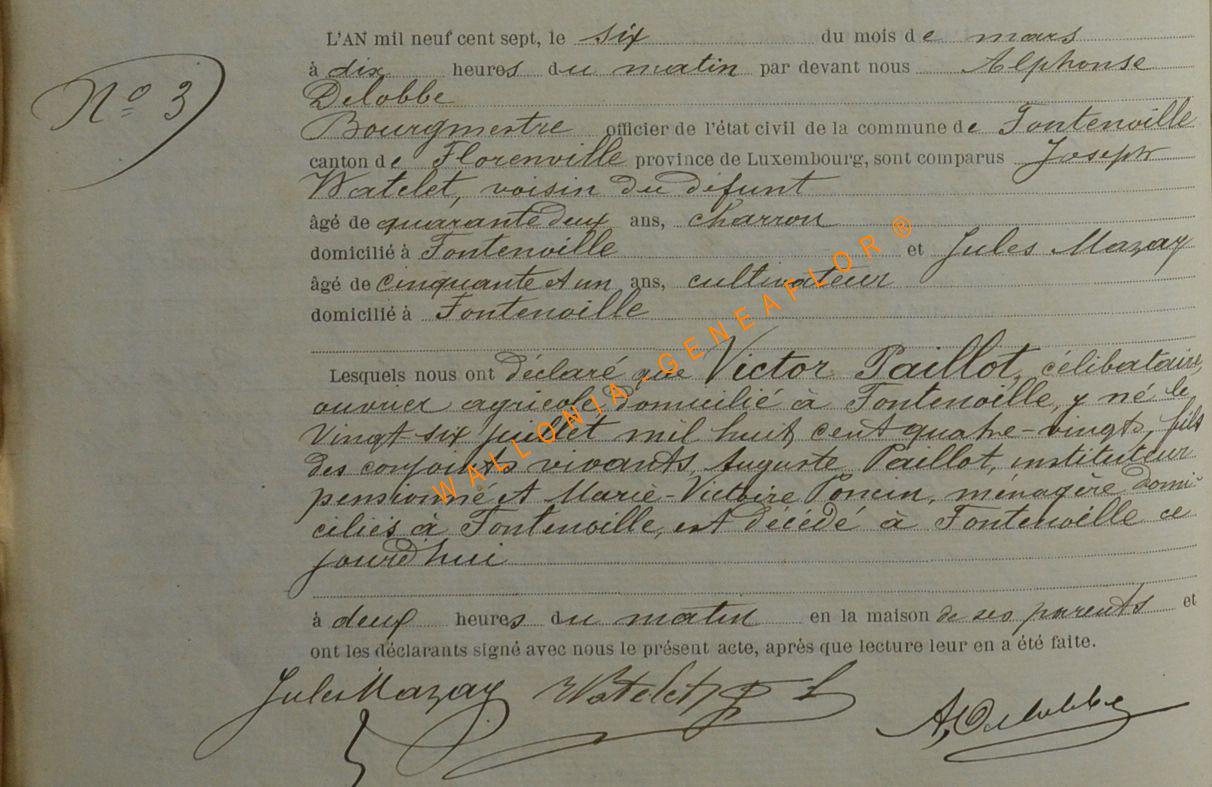 L'AN mil neuf cent sept, le six du mois de mars
N° 3
à dix heures du matin par devant nous Alphonse
Delobbe
Bourgmestre officier de l'état civil de la commune de Fontenoille
canton de Florenville province de Luxembourg, sont comparus Joseph
Watelet, voisin du défunt
âgé de quarante deux ans, charron
domicilié à Fontenoille et Jules Mazay
âgé de cinquante et un ans, cultivateur
domicilié à Fontenoille
Lesquels nous ont déclaré que Victor Paillot, célibataire,
ouvrier agricole, domicilié à Fontenoille, y né le
vingt-six juillet mil huit cent quatre-vingts, fils
des conjoints vivants, Auguste Paillot, instituteur
pensionné et Marie-Victoire Poncin, ménagère domi-
ciliés à Fontenoille, est décédé à Fontenoille ce
jourd'hui
à deux heures du matin en la maison de ses parents et
ont les déclarants signé avec nous le présent acte, après que lecture leur en a été faite.
Jules Mazay Watelet J A. Delobbe
WALLONIA-GENEAFLOR ®